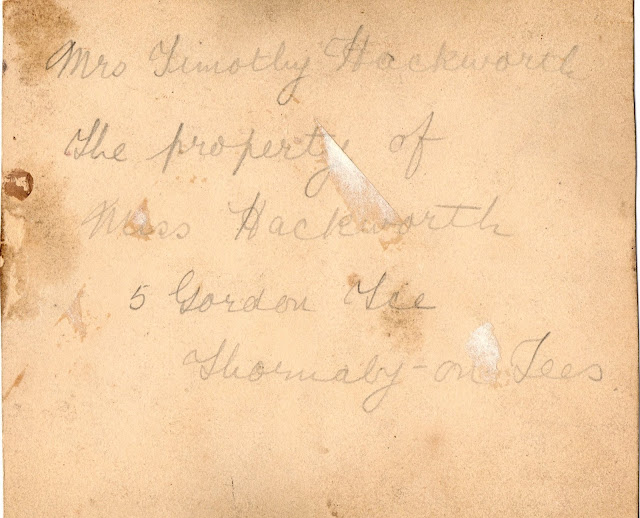 Mrs Timothy Hackworth
The property of
Miss Hackworth
5 Gordon Tce
Thornaby-on Tees